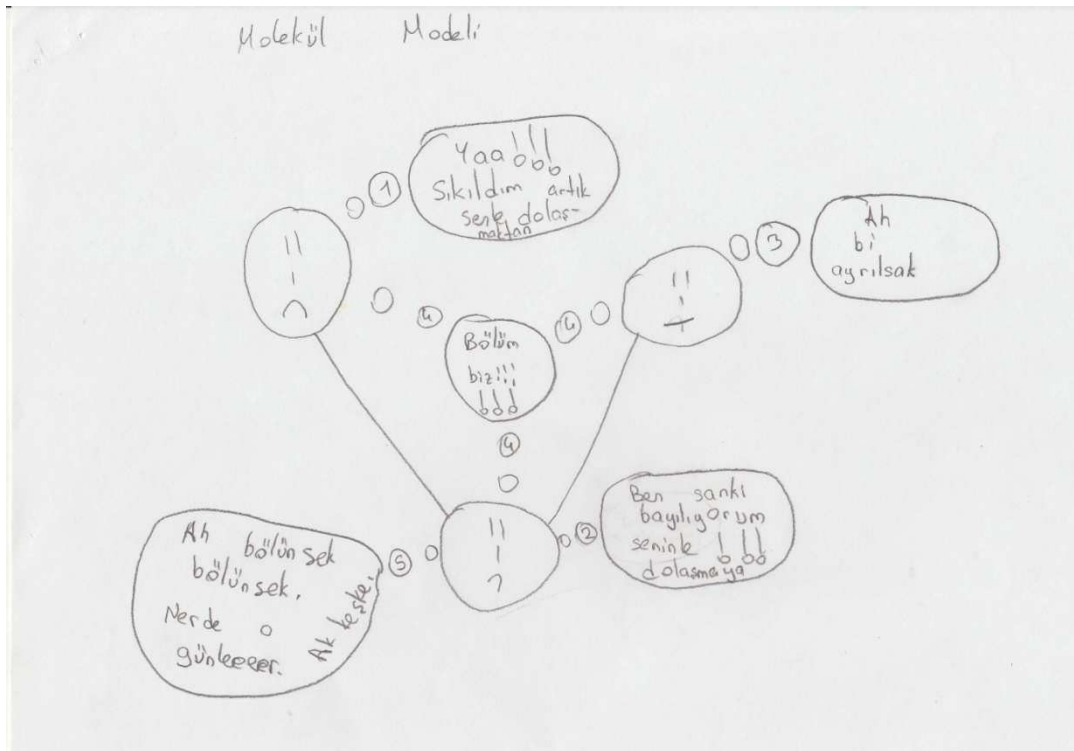 Molekül Modeli
1
Yaa!!!
Sıkıldım artık
senle dolaş-
maktan
3
Ah
bi
ayrılsak
4
4
Bölüm
biz!!!
!!!
4
2
Ben sanki
bayılıyorum
seninle !!!
dolaşmaya
5
Ah bölünsek
bölünsek.
Nerde o
günleeeer.
Ah keşke.